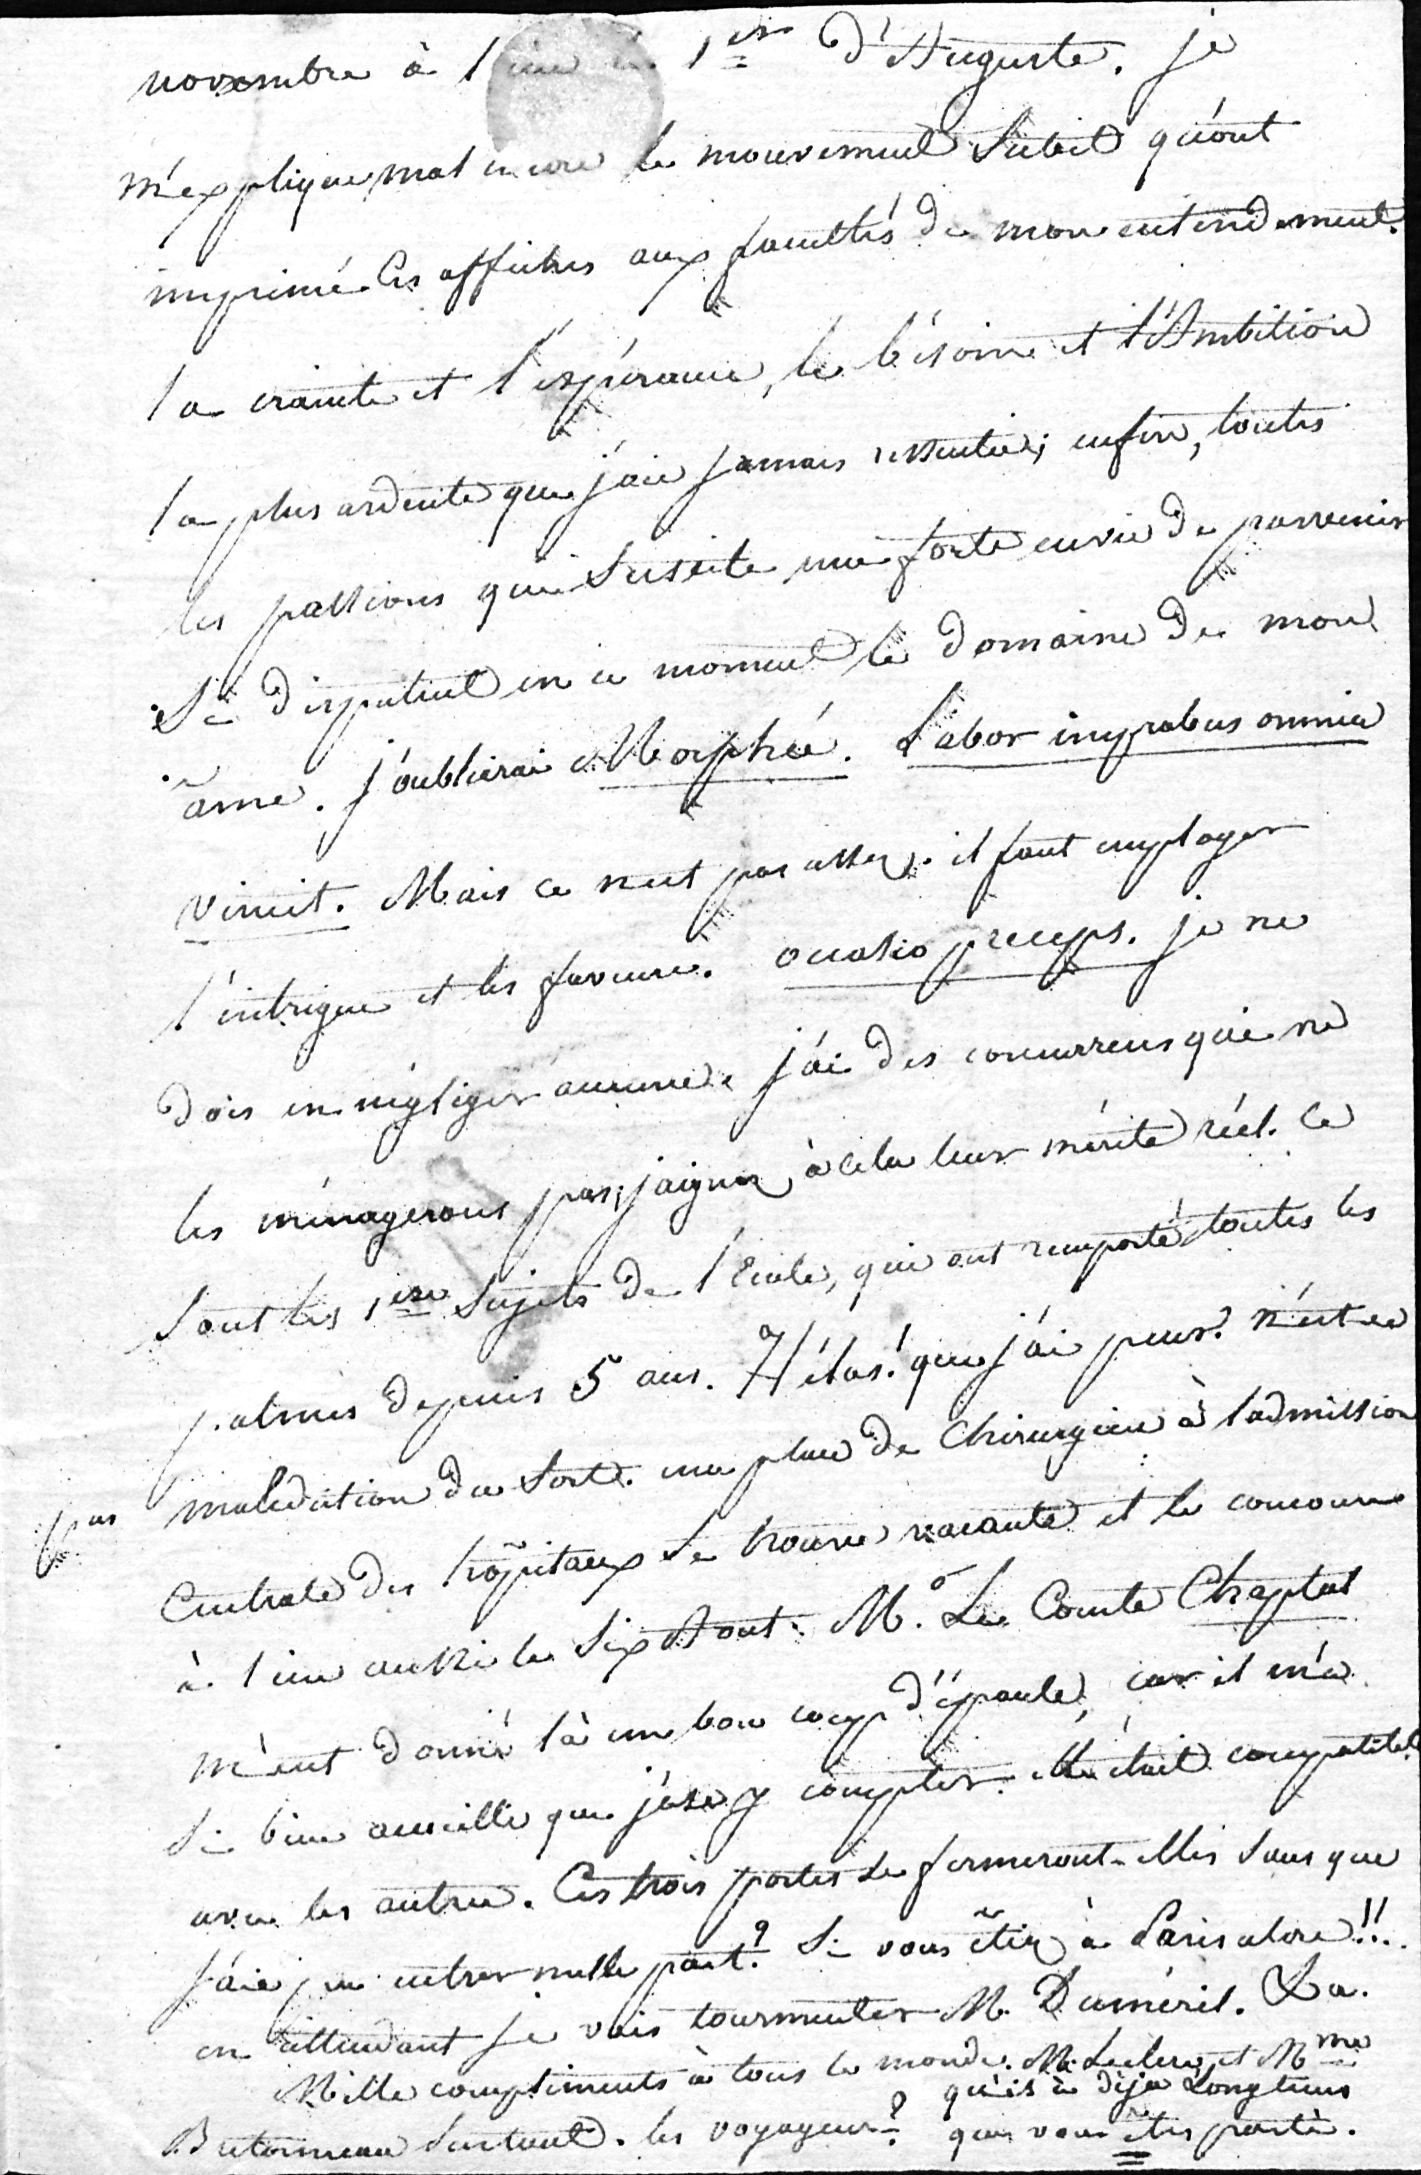 novembre à l 1er d'Auguste. je
m'explique mal encore le mouvement subit qu'ont
imprimé Ces affiches aux facultés de mon entendement.
la crainte et l'espérance, le bésoin et l'Ambition
la plus ardente que j'aie jamais ressentie; enfin, toutes
les passions que suscite une forte envie de parvenir
Se disputent en ce moment le domaine de mon
âme. j'oublierai Morphée. Labor improbus omnia
vincit. Mais ce n'est pas assez. il faut employer
l'intrigue et les faveurs. occasio præceps. je ne
dois en négliger aucune. j'ai des concurrens qui ne
les ménagerons pas; joignez à cela leur mérite réel. Ce
sont les 1ers Sujets de l'Ecole, qui ont remporté toutes les
palmes depuis 5 ans. Hélas! que j'ai peur! n'est ce
pas malédiction du sort. une place de Chirurgien à l'admission
Centrale des hôpitaux se trouve vacante et le concours
à lieu aussi le six Aout. Mr. Le Comte Chaptal
m'eut donné là un bon coup d'épaule, car il m'a
si bien accueilli que j'ose y compter. Elle était compatible
avec les autres. Ces trois portes se fermeront-elles sans que
j'aie pu entrer nulle part? Si vous êtiez à Paris alors!!.
en attendant je vais tourmenter M. Duméril. La.
Mille compliments à tous le monde. M. Leclerc et Mme
Bretonneau surtout. les voyageurs? qu'il à dèja Longtems
que vous êtes parti.